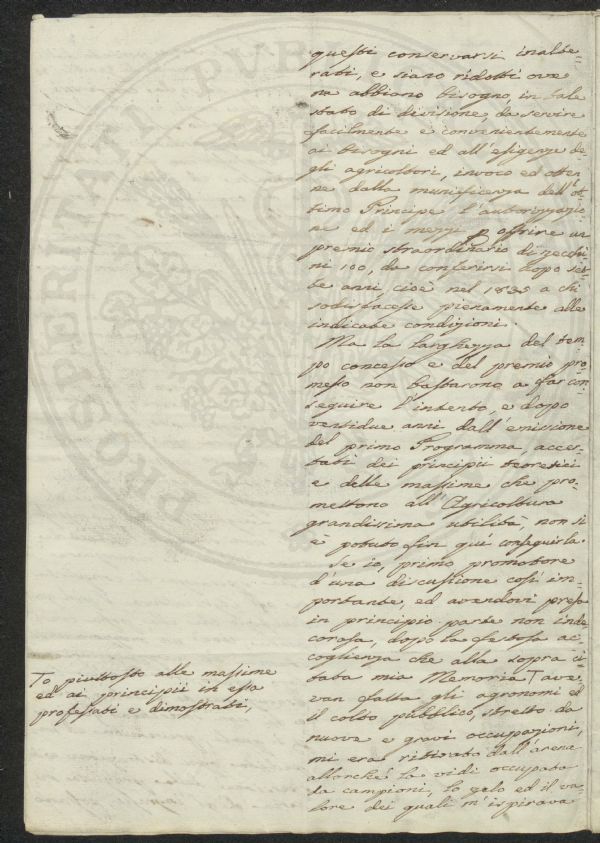 questi conservarsi inalte-
rati, e siano ridotti ove
ne abbiano bisogno, in tale
stato di divisione, da servire
facilmente e convenientemente
ai bisogni ed all'esigenze de-
gli agricoltori, invoco ed otten-
ne dalla munificenza dell'ot-
timo Principe l'autorizzazio-
ne ed i mezzi p offrire un
premio straordinario di zecchi-
ni 100, da conferirsi dopo set-
te anni, cioè nel 1835 a chi
sodisfacesse pienamente alle
indicate condizioni.
Ma la larghezza del tem-
po concesso e del premio pro-
messo non bastarono a far con-
seguire l'intento, e dopo
ventidue anni dall'emissione
del primo Programma, accer-
tati dei principii teoretici
e delle massime che pro-
mettono all'Agricoltura
grandissima utilità, non si
è potuto fin qui conseguirla
Se io, primo promotore
d'una discussione così im-
portante, ed avendovi presa
in principio parte non inde-
corosa, dopo la festosa ac-
coglienza che alla sopra ci-
tata mia Memoria T ave-
van fatta gli agronomi ed
il colto pubblico, stretto da
nuove e gravi occupazioni,
mi era ritirato dall'arena
allorchè la vidi occupata
da campioni, lo zelo ed il va-
lore dei quali m'ispirava
To piuttosto alle massime
ed ai principii in essa
professati e dimostrati,
PROSPERITATI PUBLI